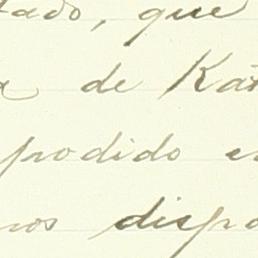 tado, que
a de Kar
prodido en
nos dispo